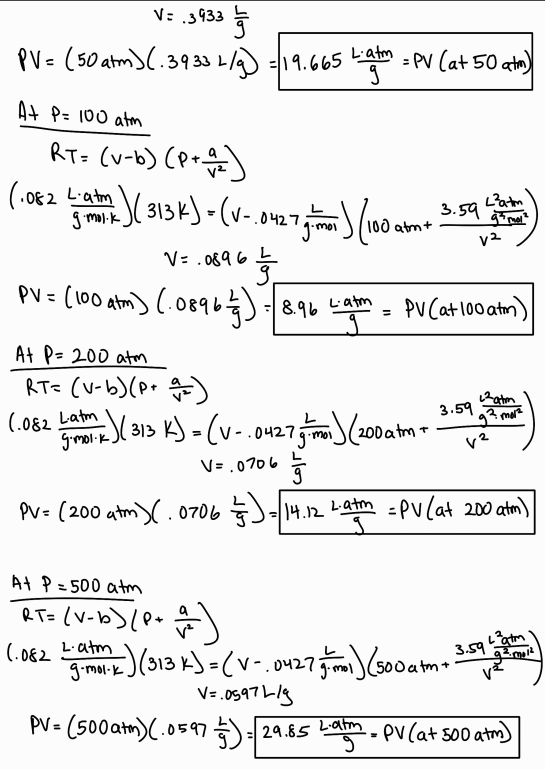 V= .3933 L/g
PV = (50 atm)(.3933 L/g) = 19.665 L·atm/g = PV (at 50 atm)
At P= 100 atm
RT= (V-b) (P+ a/V²)
(.082 L·atm/g·mol·K)(313 K) = (V-.0427 L/g·mol)(100 atm+ 3.59 L²atm/g²mol²/V²)
V= .0896 L/g
PV = (100 atm) (.0896 L/g) = 8.96 L·atm/g = PV(at 100 atm)
At P= 200 atm
RT= (V-b)(P+ a/V²)
(.082 L·atm/g·mol·K)(313 K) = (V-.0427 L/g·mol)(200 atm+ 3.59 L²atm/g²·mol²/V²)
V= .0706 L/g
PV= (200 atm)(.0706 L/g) = 14.12 L·atm/g = PV(at 200 atm)
At P = 500 atm
RT= (V-b) (P+ a/V²)
(.082 L·atm/g·mol·K)(313 K) = (V-.0427 L/g·mol)(500 atm+ 3.59 L²atm/g²·mol²/V²)
V= .0597 L/g
PV= (500 atm)(.0597 L/g) = 29.85 L·atm/g = PV(at 500 atm)